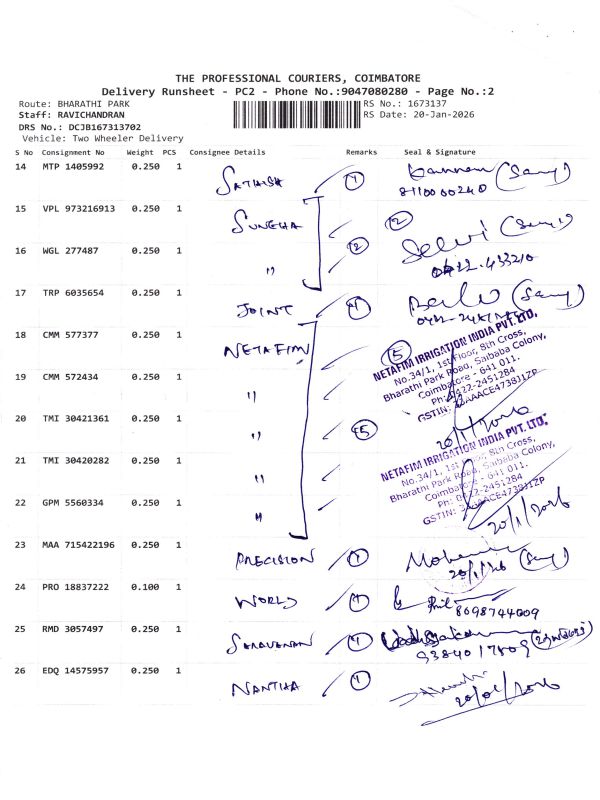 THE PROFESSIONAL COURIERS, COIMBATORE
Delivery Runsheet - PC2 - Phone No.:9047080280 - Page No.:2
Route: BHARATHI PARK
RS No.: 1673137
Staff: RAVICHANDRAN
RS Date: 20-Jan-2026
DRS No.: DCJB167313702
Vehicle: Two Wheeler Delivery
S No Consignment No Weight PCS Consignee Details Remarks Seal & Signature
14 MTP 1405992 0.250 1 SATHISH 1
8110000240
15 VPL 973216913 0.250 1 SUNEHA 2
16 WGL 277487 0.250 1 " 2 Selvi
17 TRP 6035654 0.250 1 JOINT 1
18 CMM 577377 0.250 1 NETAFIM 5
NETAFIM IRRIGATION INDIA PVT. LTD.
No.34/1, 1st Floor, 8th Cross,
Bharathi Park Road, Saibaba Colony,
Coimbatore - 641 011.
Ph: 0422-2451284
19 CMM 572434 0.250 1 "
20 TMI 30421361 0.250 1 " 5
20/1/2026
NETAFIM IRRIGATION INDIA PVT. LTD.
No.34/1, 1st Floor, 8th Cross,
Bharathi Park Road, Saibaba Colony,
Coimbatore - 641 011.
Ph: 0422-2451284
21 TMI 30420282 0.250 1 "
22 GPM 5560334 0.250 1 "
20/1/2026
23 MAA 715422196 0.250 1 PRECISION 1
20/1/26
24 PRO 18837222 0.100 1 WORLD 1
8098744009
25 RMD 3057497 0.250 1 SARAVANAN 1
9384017809
26 EDQ 14575957 0.250 1 NANTHA 1
20/01/2026